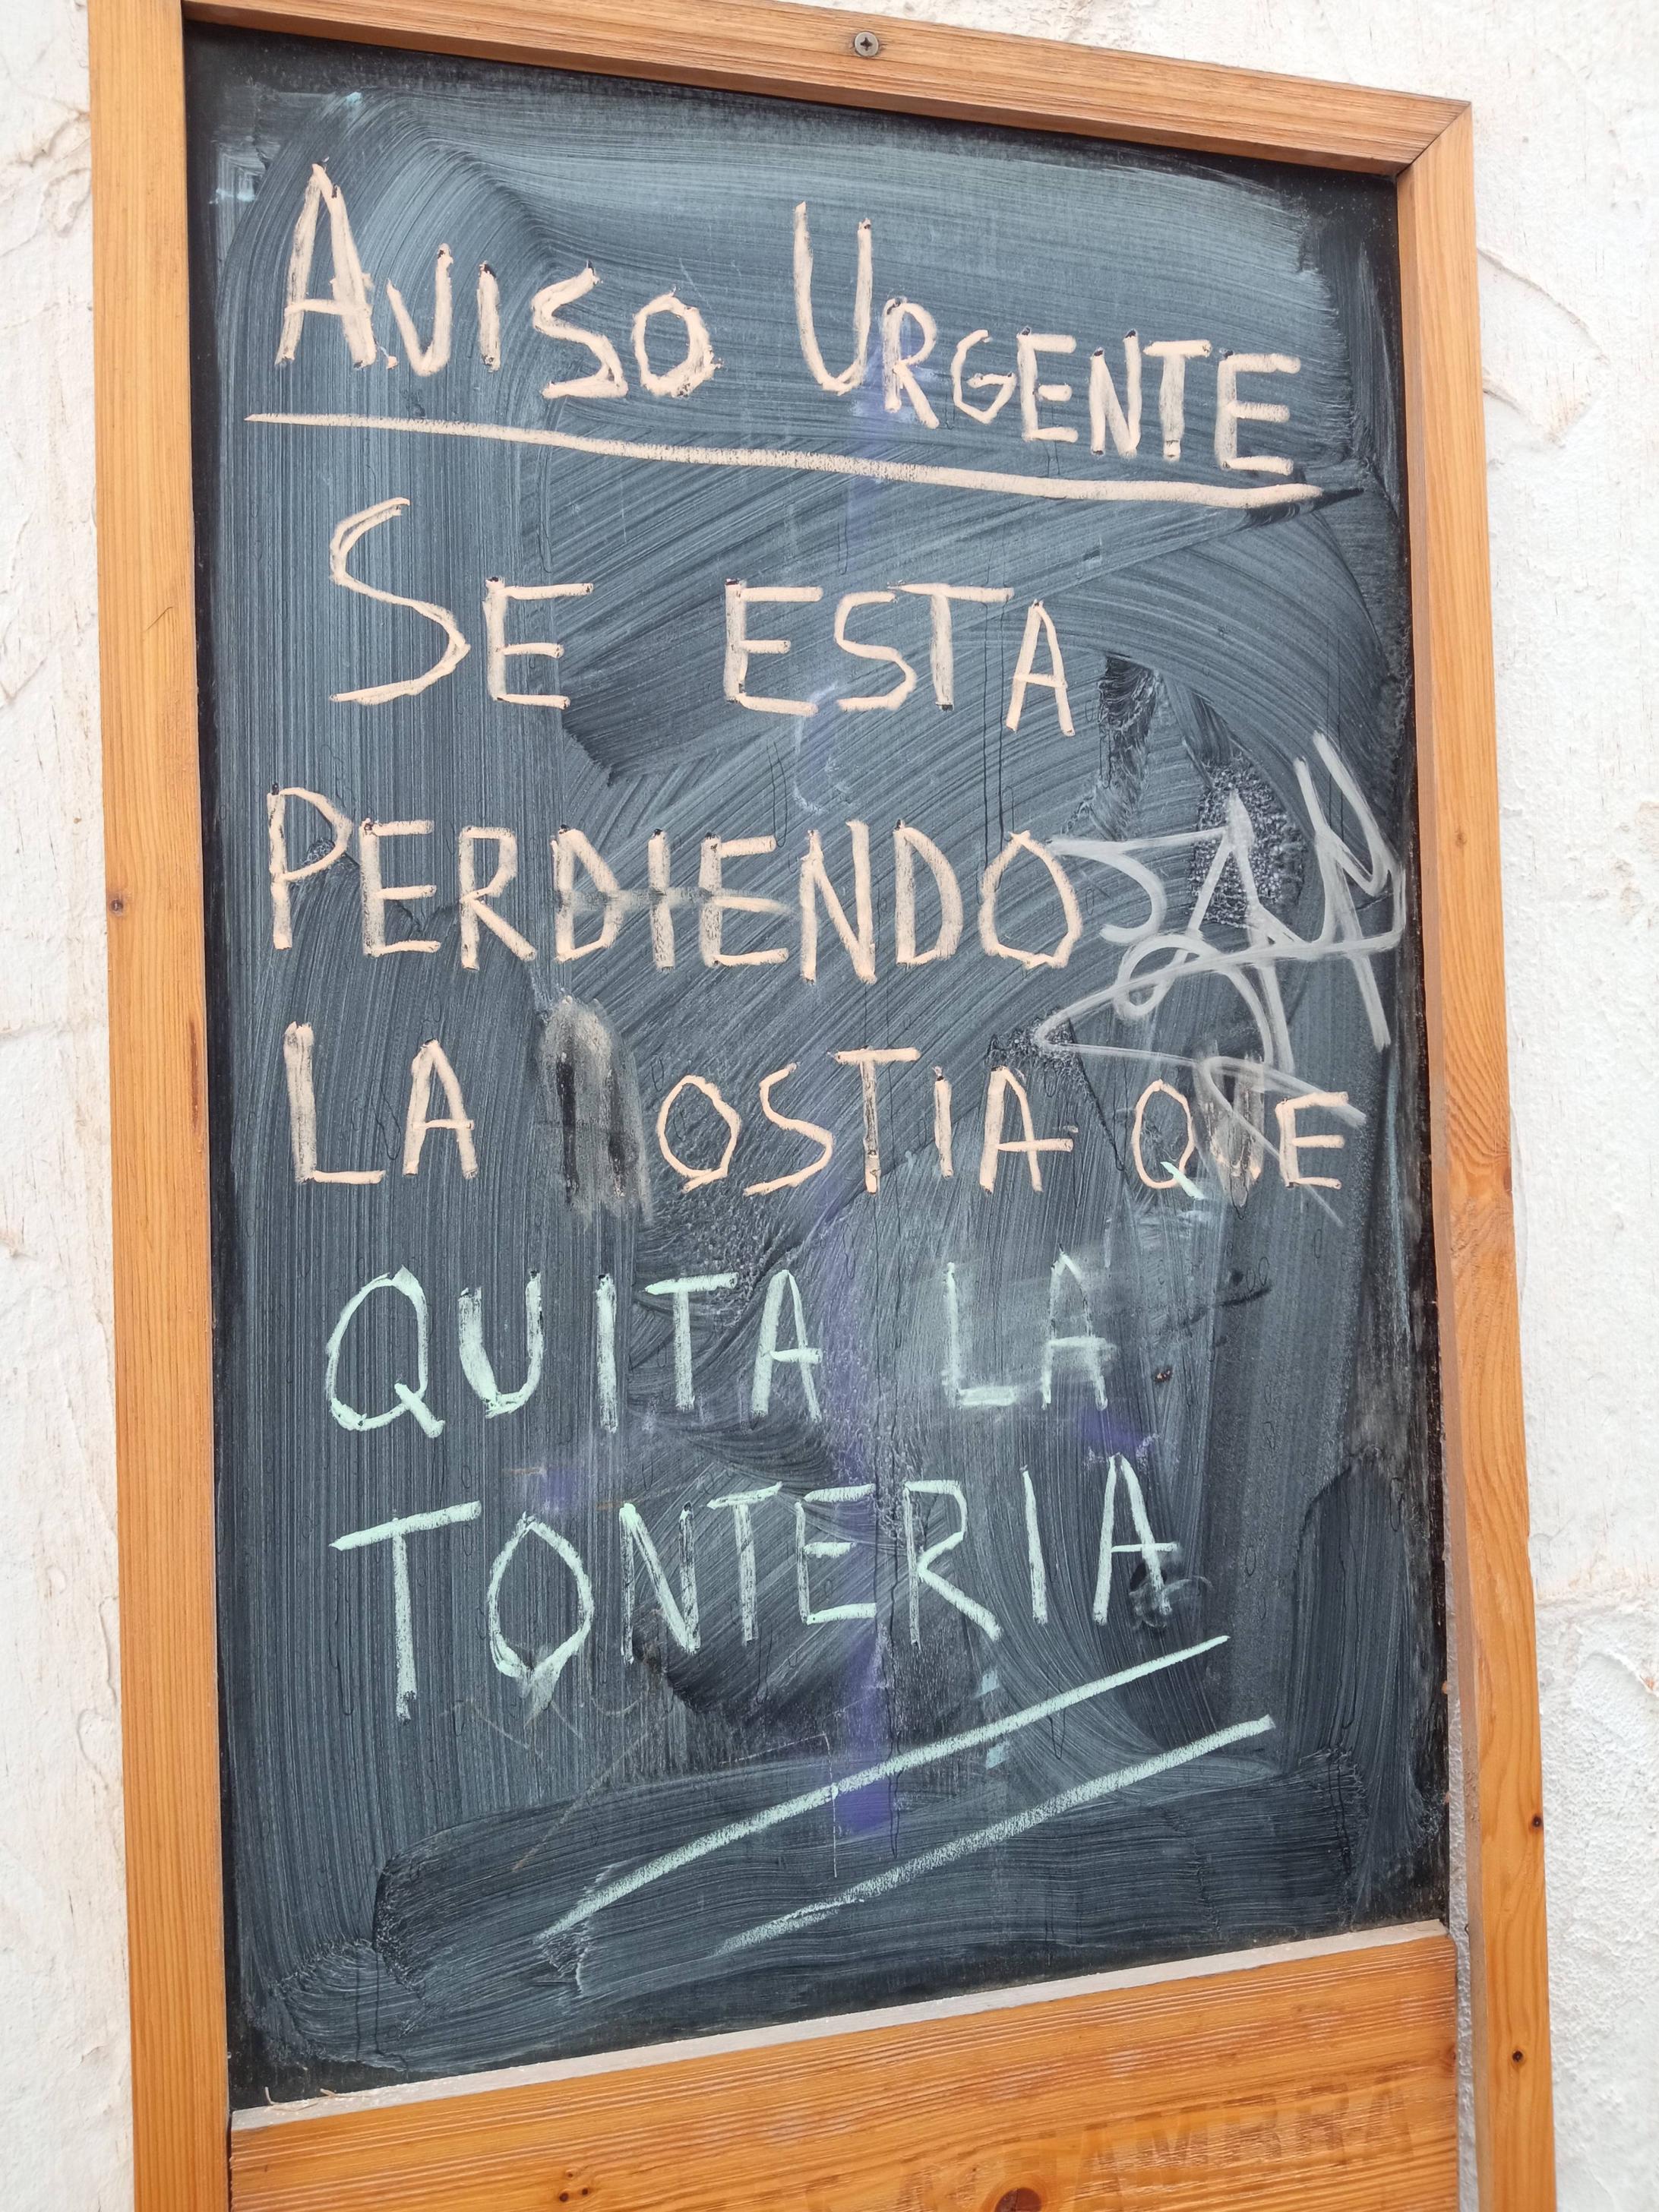 AVISO URGENTE
SE ESTA
PERDIENDO
LA OSTIA QUE
QUITA LA
TONTERIA